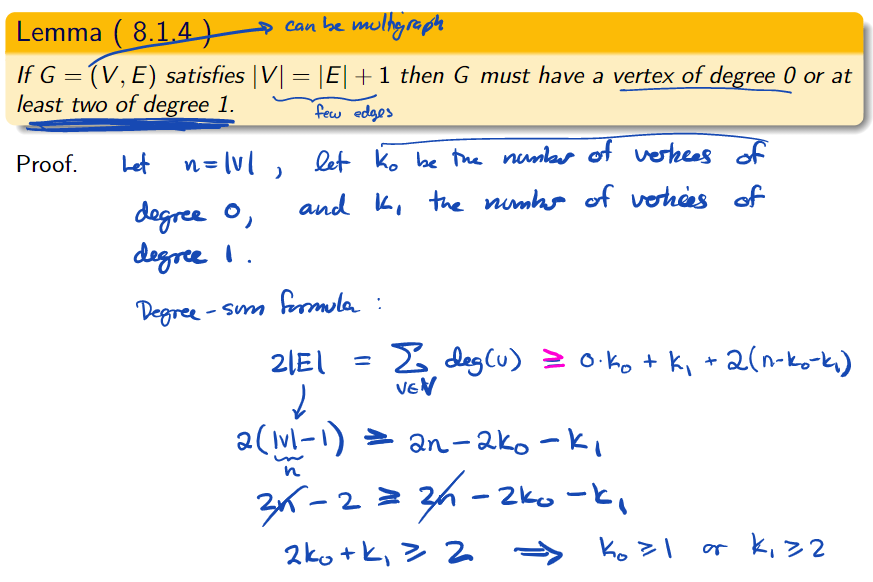 Lemma ( 8.1.4 ) → can be multigraph
If G = (V, E) satisfies |V| = |E| + 1 then G must have a vertex of degree 0 or at
least two of degree 1.
few edges
Proof. Let n = |V| , let k₀ be the number of vertices of
degree 0, and k₁ the number of vertices of
degree 1.
Degree-sum formula :
2|E| = ∑ deg(v) ≥ 0·k₀ + k₁ + 2(n-k₀-k₁)
v∈V
2(|V|-1) ≥ 2n - 2k₀ - k₁
n
2n - 2 ≥ 2n - 2k₀ - k₁
2k₀ + k₁ ≥ 2 ⟹ k₀ ≥ 1 or k₁ ≥ 2